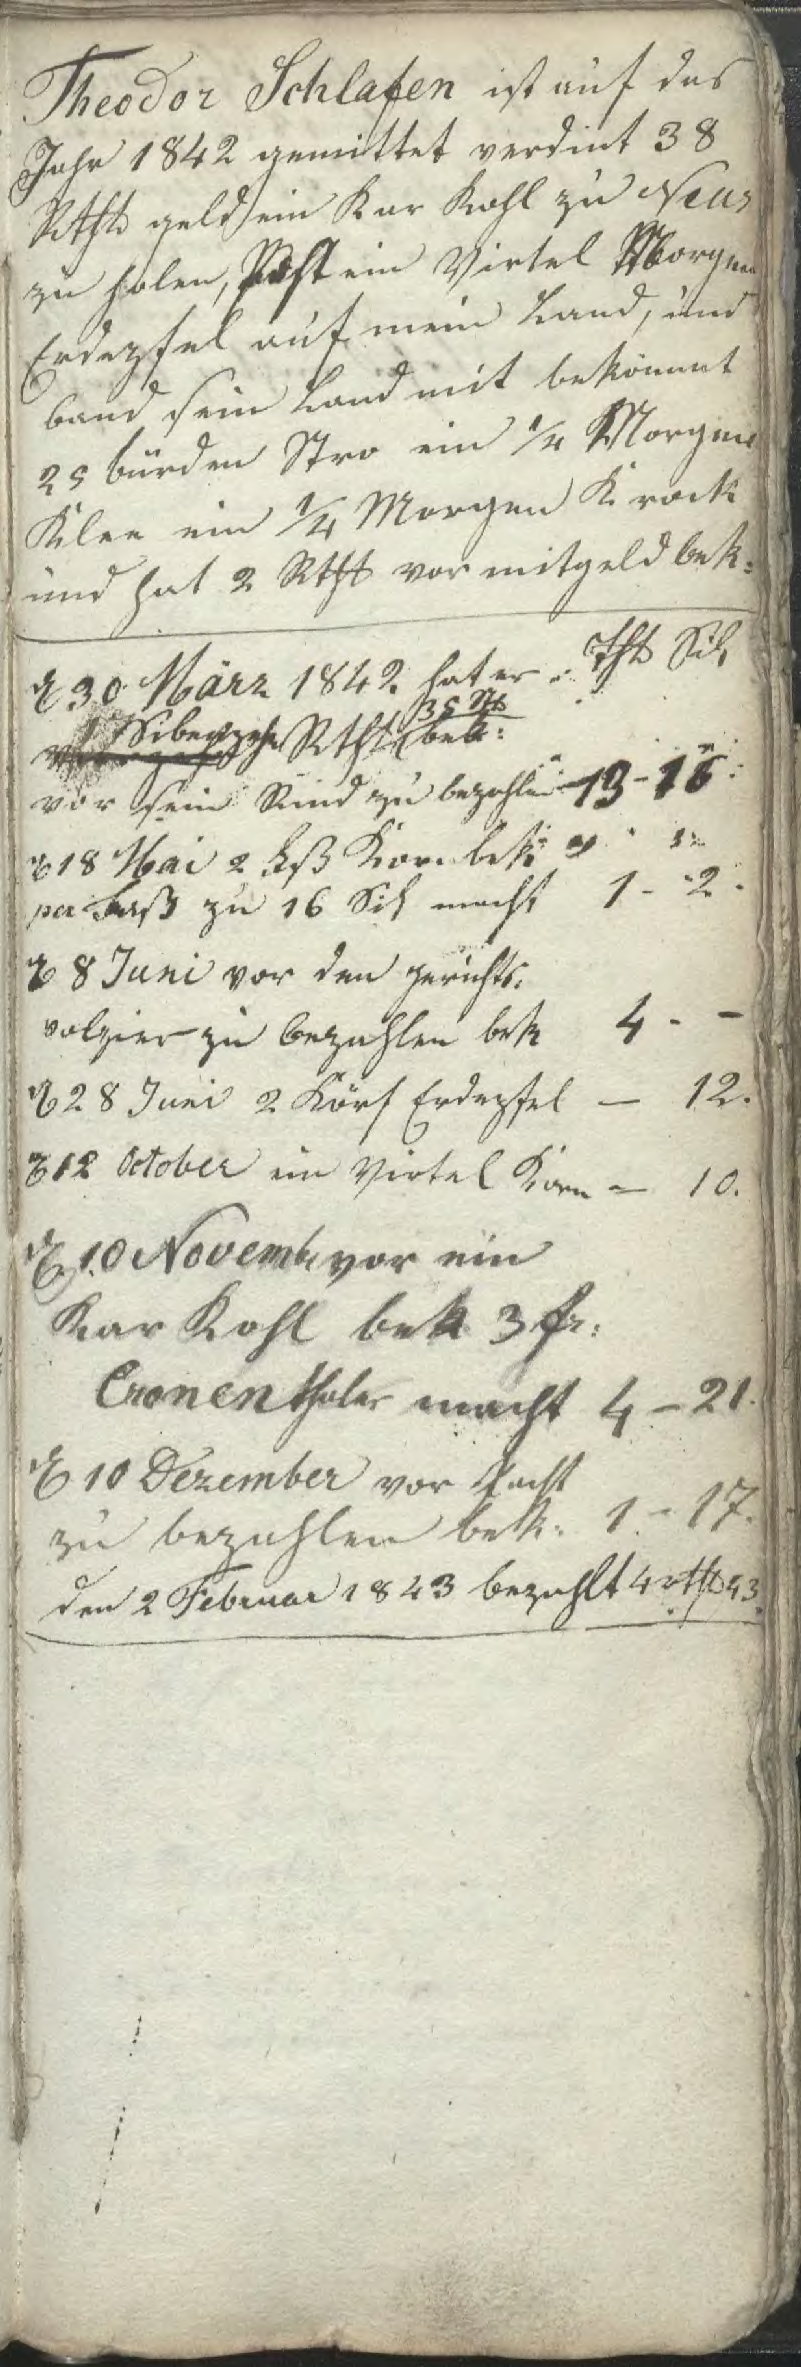 Theodor Schlafen ist auf das
Jahr 1842 gemittet verdint 38
Rthl geld ein Kar Kohl zu Neus
zu holen, ein Virtel Morgen
Erdepfel auf mein Land, und
band sein Land mit bekömmt
25 bürden Stro ein 1/4 Morgen
Klee ein 1/4 Morgen Krock
und hat 2 Rthl vor mitgeld bek:
d 30 März 1842 hat er Thl Sil
Sibenzehn Rthl bek:
vor sein Rind zu bezahlen 13 - 16
d 18 Mai 2 Korn bek
per Faß zu 16 Sil macht 1 - 2
d 8 Juni vor den gerichts-
volzier zu bezahlen bek 4 - -
d 28 Juni 2 Körf Erdepfel - 12.
d 12 October ein Virtel Korn - 10.
d 10 Novemb vor ein
Kar Kohl bek 3 fr:
Cronenthaler macht 4 - 21.
d 10 Dezember vor Pacht
zu bezahlen bek. 1 - 17.
den 2 Februar 1843 bezahlt 4 rthl 53